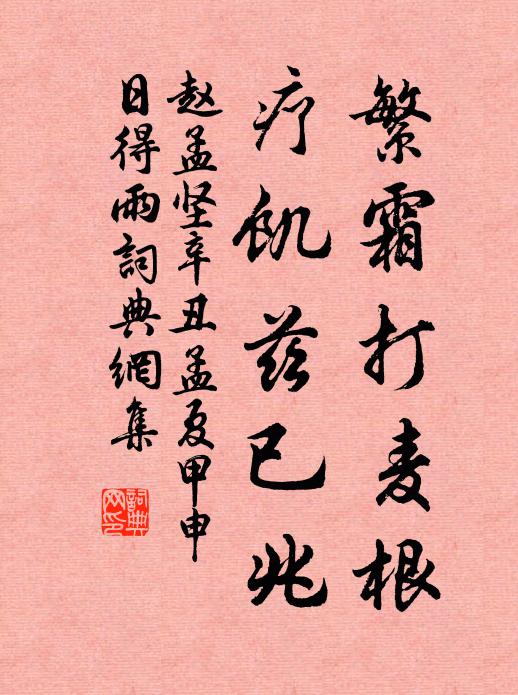 繁霜打麦根
疗飢兹已兆
赵孟坚辛丑孟夏甲申
日得雨詞典網集
詞典網印